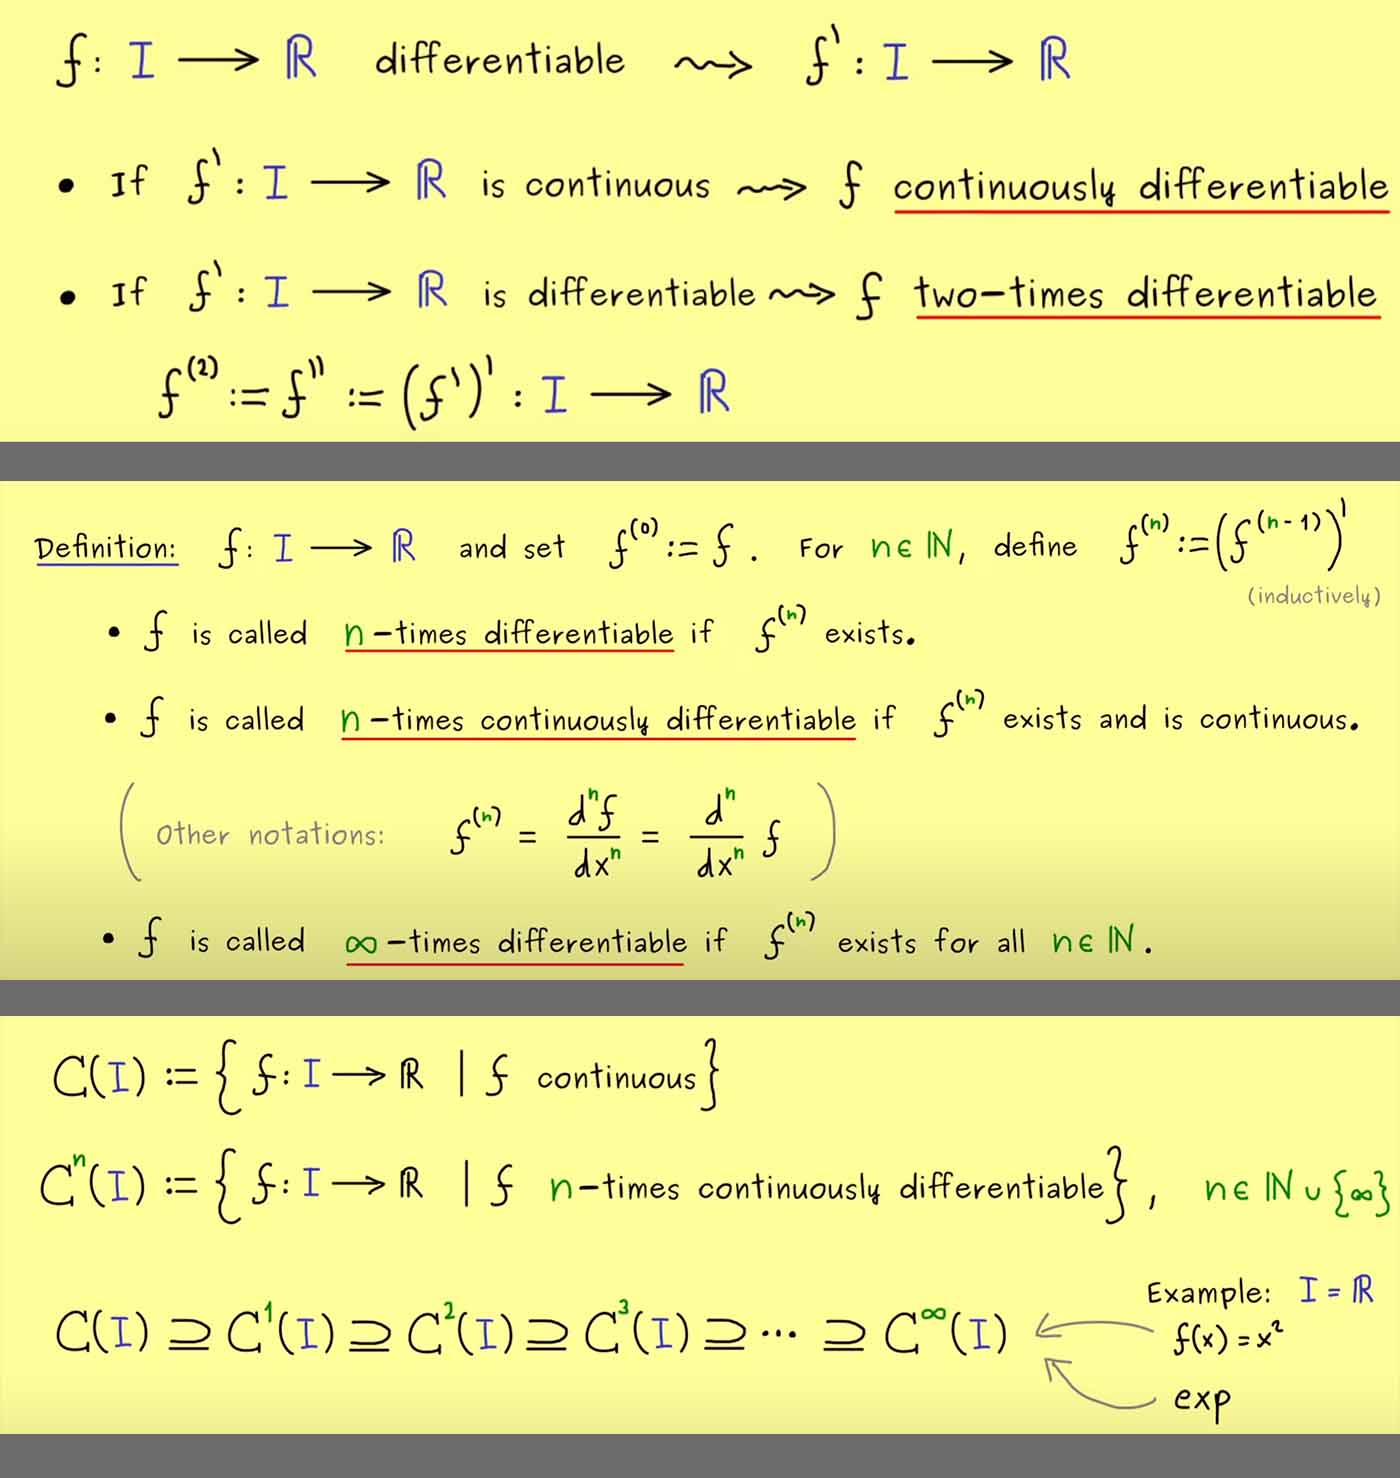 f: I ⟶ ℝ differentiable ⇝ f': I ⟶ ℝ
• If f': I ⟶ ℝ is continuous ⇝ f continuously differentiable
• If f': I ⟶ ℝ is differentiable ⇝ f two-times differentiable
f⁽²⁾ := f'' := (f')' : I ⟶ ℝ
Definition: f: I ⟶ ℝ and set f⁽⁰⁾ := f. For n ∈ ℕ, define f⁽ⁿ⁾ := (f⁽ⁿ⁻¹⁾)'
(inductively)
• f is called n-times differentiable if f⁽ⁿ⁾ exists.
• f is called n-times continuously differentiable if f⁽ⁿ⁾ exists and is continuous.
(Other notations: f⁽ⁿ⁾ = dⁿf/dxⁿ = dⁿ/dxⁿ f)
• f is called ∞-times differentiable if f⁽ⁿ⁾ exists for all n ∈ ℕ.
C(I) := {f: I ⟶ ℝ | f continuous}
Cⁿ(I) := {f: I ⟶ ℝ | f n-times continuously differentiable}, n ∈ ℕ ∪ {∞}
C(I) ⊇ C¹(I) ⊇ C²(I) ⊇ C³(I) ⊇ ⋯ ⊇ C^∞(I)
Example: I = ℝ
f(x) = x²
exp